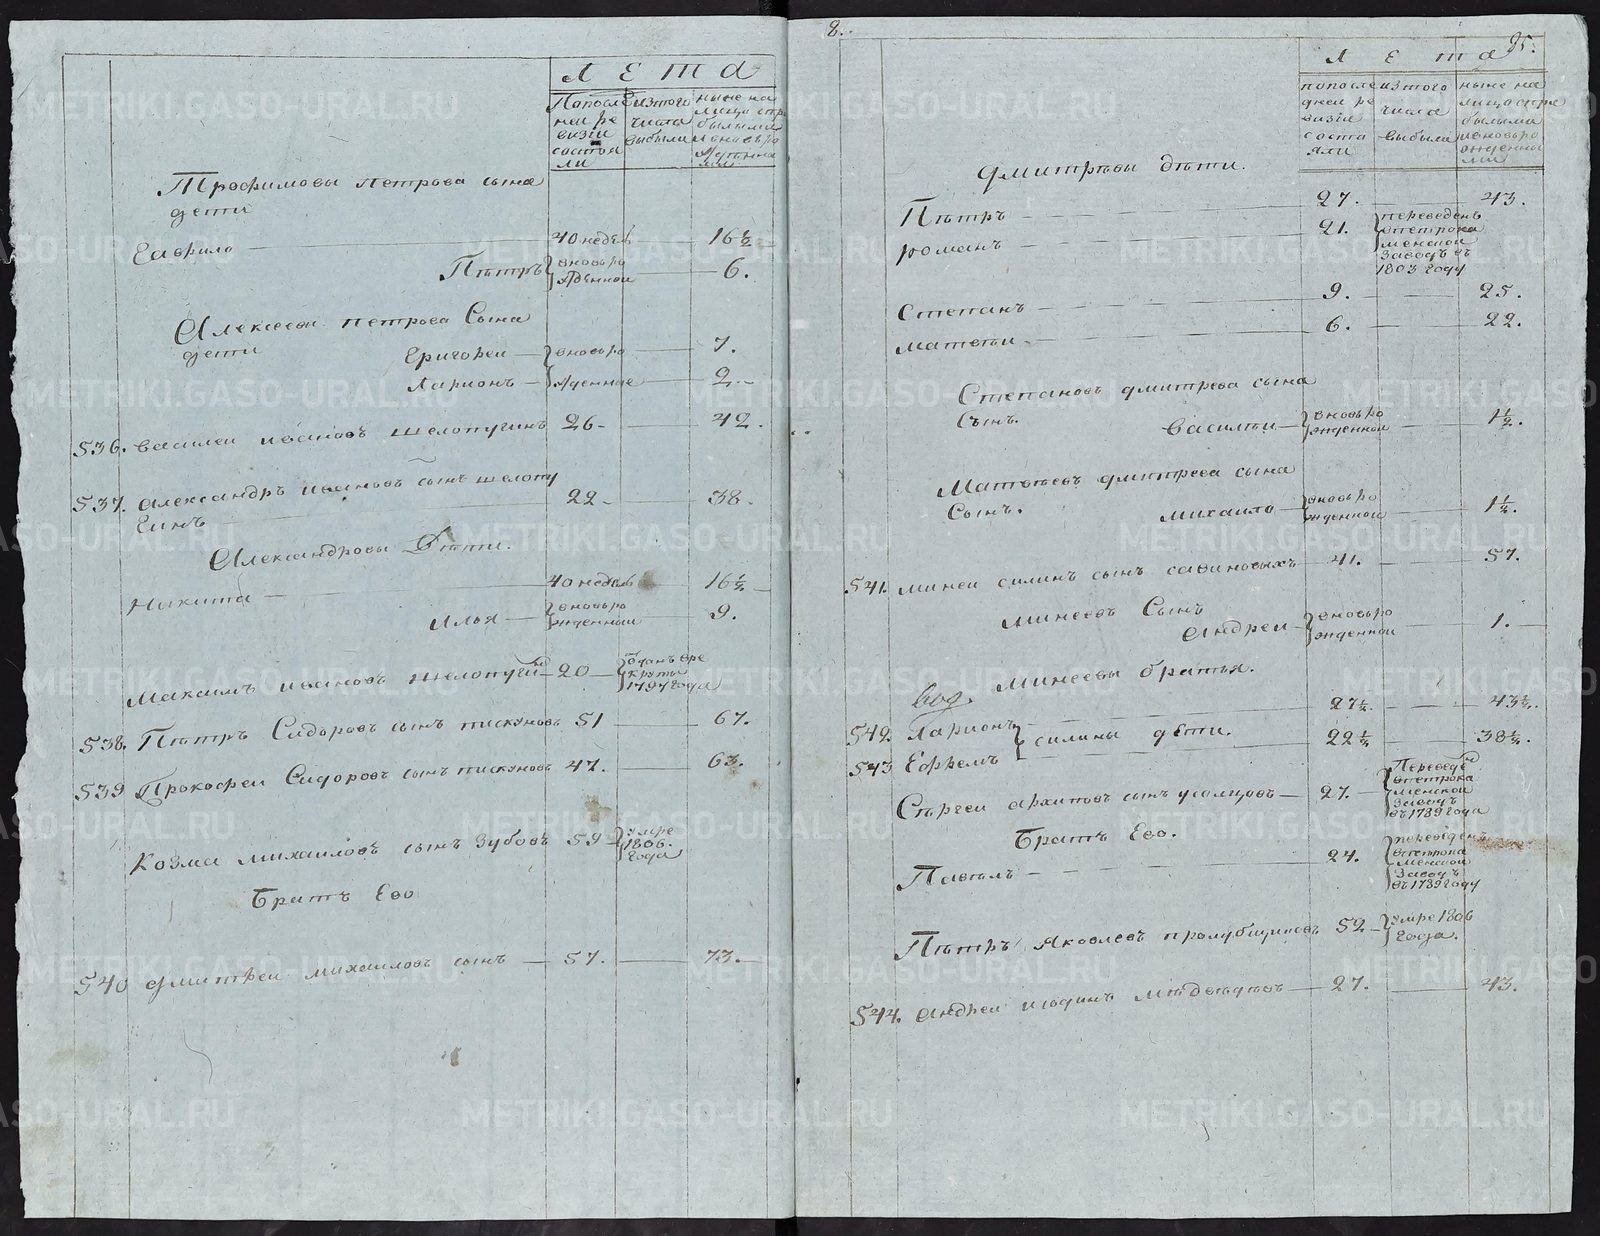 Лета
Попосле
ней ре
визїи
состоя
ли
изтого
числа
выбыли
ныне на
лицо спр
былыми
и вновь ро
жденны
ми
Трофимовы Петрова сына
дети
Гаврило 40 недель 16½
Петръ вновь рожденной 6.
Алексеевы петрова Сына
дети
Григорей вновь ро 7.
Ларионъ жденные 2.
536. василеи ивановъ шелопугинъ 26 42.
537. Александръ ивановъ сынъ шелопу
гинъ 22 38.
Александровы Дѣти.
Никита 40 недель 16½
Илья вновь рожденный 9.
Максимъ ивановъ шелопугинъ 20 отданъ вре
круты
1797 года
538. Пѣтръ Сидоровъ сынъ пискуновъ 51 67.
539 Прокофеи Сидоровъ сынъ пискуновъ 47. 63.
Козма михаиловъ сынъ Зубовъ 59 умре
1806.
года
Братъ Ево
540 дмитреи михаиловъ сынъ 57. 73.
8.
95.
Лета
попосле
дней ре
визїи
состо
яли
изтого
числа
выбыли
ныне на
лицо спри
былыми
и вновь ро
жденны
ми
дмитрѣвы дѣти.
Пѣтръ 27. 43.
романъ 21. переведенъ
впетрока
менской
Заводъ въ
1803 году
Степанъ 9. 25.
матвѣи 6. 22.
Степановъ дмитрева сына
Сынъ. василѣи вновь ро
жденной 1½.
Матвѣевъ дмитрева сына
Сынъ. михаило вновь ро
жденной 1½.
541. минеи силинъ сынъ савиновыхъ 41. 57.
минеевъ Сынъ
Андреи вновь ро
жденной 1.
Минеевы братья.
542. Ларионъ 27½. 43½.
силины дети.
543 Ефремъ 22½ 38½.
Сергеи архиповъ сынъ усолцовъ 27. Переведен
впетрока
менской
Заводъ
въ 1789 года
Братъ Ево.
Павелъ 24. переведенъ
впетрока
менской
Заводъ
въ 1789 году
Пѣтръ Яковлевъ пролубщиковъ 52 умре 1806
года.
544. андреи июдинъ мѣдвѣдѣвъ 27. 43.
METRIKI.GASO-URAL.RU